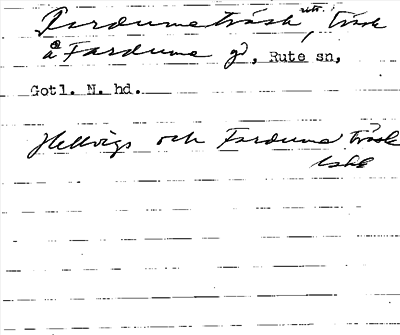 Fardumeträsk, träsk
å Fardume gd, Rute sn,
Gotl. N. hd.
Hellvigs och Fardume träsk